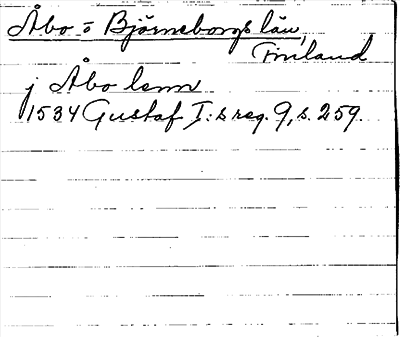 Åbo o Björneborgs län,
Finland
j Åbo lenn
1534 Gustaf I:s reg. 9, s. 259.